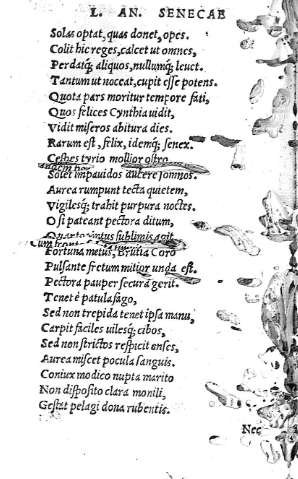 L. AN. SENECAE
Solas optat, quas donet, opes.
Colit hic reges, calcet ut omnes,
Perdatq; aliquos, nullumq; leuet.
Tantum ut noceat, cupit esse potens.
Quota pars moritur tempore fati,
Quos felices Cynthia uidit,
Vidit miseros abitura dies.
Rarum est, felix, idemq; senex.
Cespes tyrio mollior ostro
Solet impauidos ducere somnos.
Aurea rumpunt tecta quietem,
Vigilesq; trahit purpura noctes.
O si pateant pectora ditum,
intus sublimis agit
Fortuna metus, Brutia Coro
Pulsante fretum mitior unda est.
Pectora pauper secura gerit.
Tenet è patula fago,
Sed non trepida tenet ipsa manu,
Carpit faciles uilesq; cibos,
Sed non strictos respicit enses,
Aurea miscet pocula sanguis.
Coniux modico nupta marito
Non disposito clara monili,
Gestat pelagi dona rubentis.
Nec